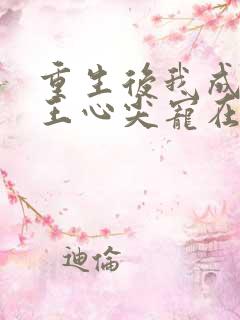 重生後我成
王心尖寵在
迪倫